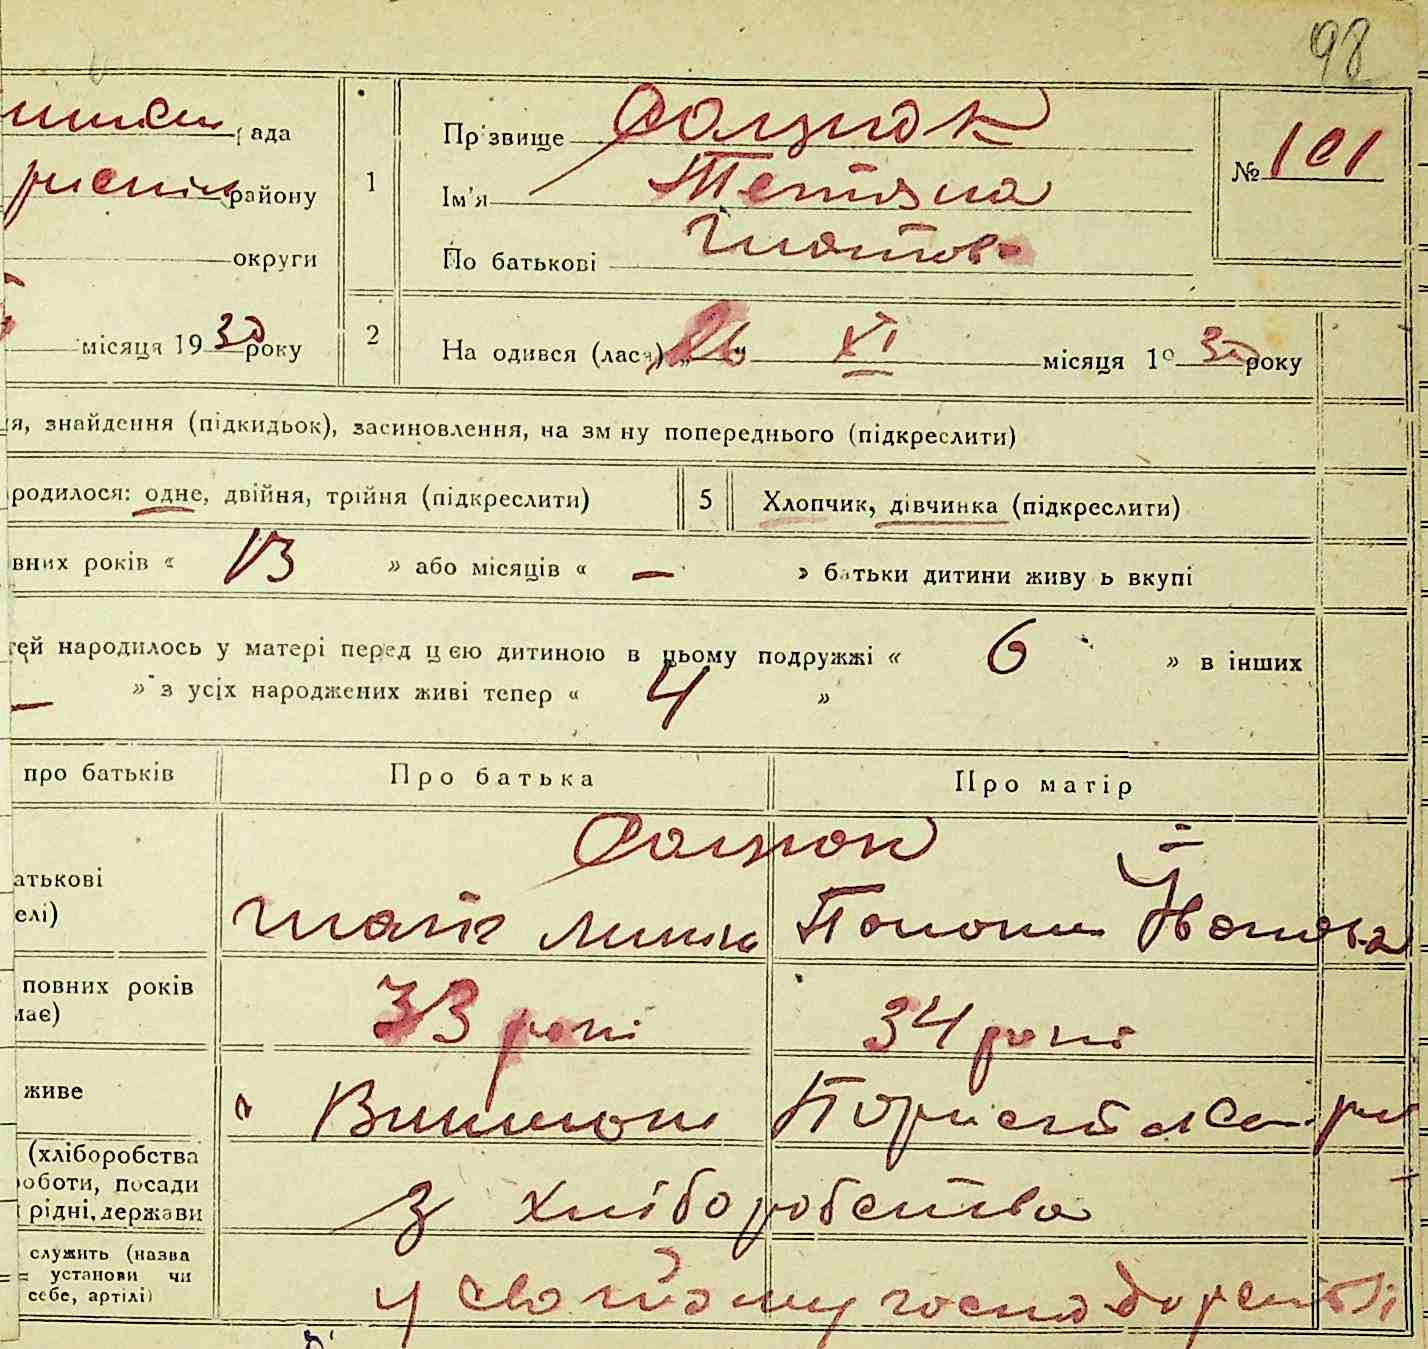 98
рада
Прізвище
№ 101
району
1
Ім'я Тетяна
округи
По батькові Гнатов
місяця 1930 року
2
На одився (лася) „26“ XI місяця 1930 року
ня, знайдення (підкидьок), засиновлення, на зміну попереднього (підкреслити)
родилося: одне, двійня, трійня (підкреслити)
5
Хлопчик, дівчинка (підкреслити)
вних років « 13 » або місяців « — » батьки дитини живуть вкупі
тей народилось у матері перед цією дитиною в цьому подружжі « 6 » в інших
— » з усіх народжених живі тепер « 4 »
про батьків
Про батька
Про матір
атькові
елі)
Гнат
Іванова
повних років
має)
33 рокі
34 рокі
живе
(хліборобства
роботи, посади
рідні, держави
з хліборобства
служить (назва
установи чи
себе, артілі)
у свойому господарстві